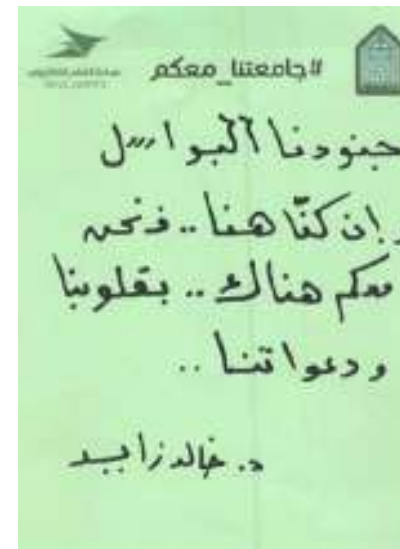 #جامعتنا_معكم
جنودنا البواسل
إن كنّا هنا .. فنحن
معكم هناك .. بقلوبنا
ودعواتنا ..
د. خالد زايد